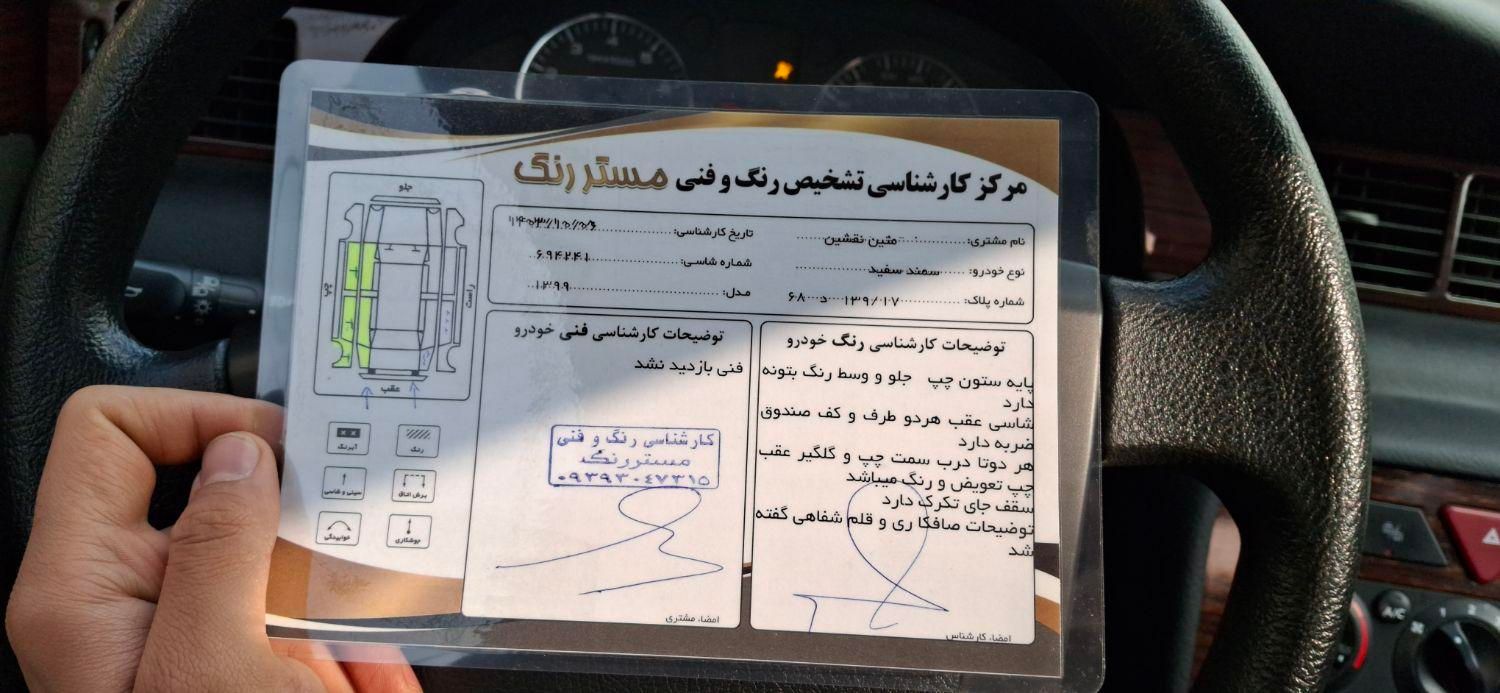 مرکز کارشناسی تشخیص رنگ و فنی مستر رنگ
نام مشتری: متین نقشین
تاریخ کارشناسی: ۱۴۰۳/۱۰/۰۶
نوع خودرو: سمند سفید
شماره شاسی: ۶۹۴۲۴۱
شماره پلاک: ۱۳۹/۱۷ د ۶۸
مدل: ۱۳۹۹
توضیحات کارشناسی رنگ خودرو
پایه ستون چپ جلو و وسط رنگ بتونه
دارد
شاسی عقب هردو طرف و کف صندوق
ضربه دارد
هر دوتا درب سمت چپ و گلگیر عقب
چپ تعویض و رنگ میباشد
سقف جای تگرک دارد
توضیحات صافکا ری و قلم شفاهی گفته
شد
امضاء کارشناس
توضیحات کارشناسی فنی خودرو
فنی بازدید نشد
کارشناسی رنگ و فنی
مستررنگ
۰۹۳۹۳۰۴۷۳۱۵
امضاء مشتری
جلو
راست
چپ
عقب
رنگ
آبرنگ
برش اتاق
سینی و شاسی
جوشکاری
خوابیدگی
A/C